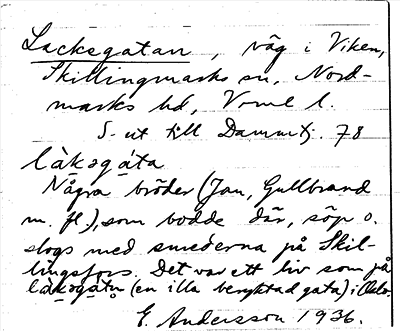 Lacksgatan, väg i Viken,
Skillingmarks sn, Nord-
marks hd, Vrml l.
S. ut till Dammtj. 78
làksgáta
Några bröder (Jan, Gullbrand
m. fl.), som bodde där, söp o.
slogs med smederna på Skil-
lingsfors. Det var ett liv som på
làksgátụ (en illa beryktad gata) i Oslo.
E. Andersson 1936.